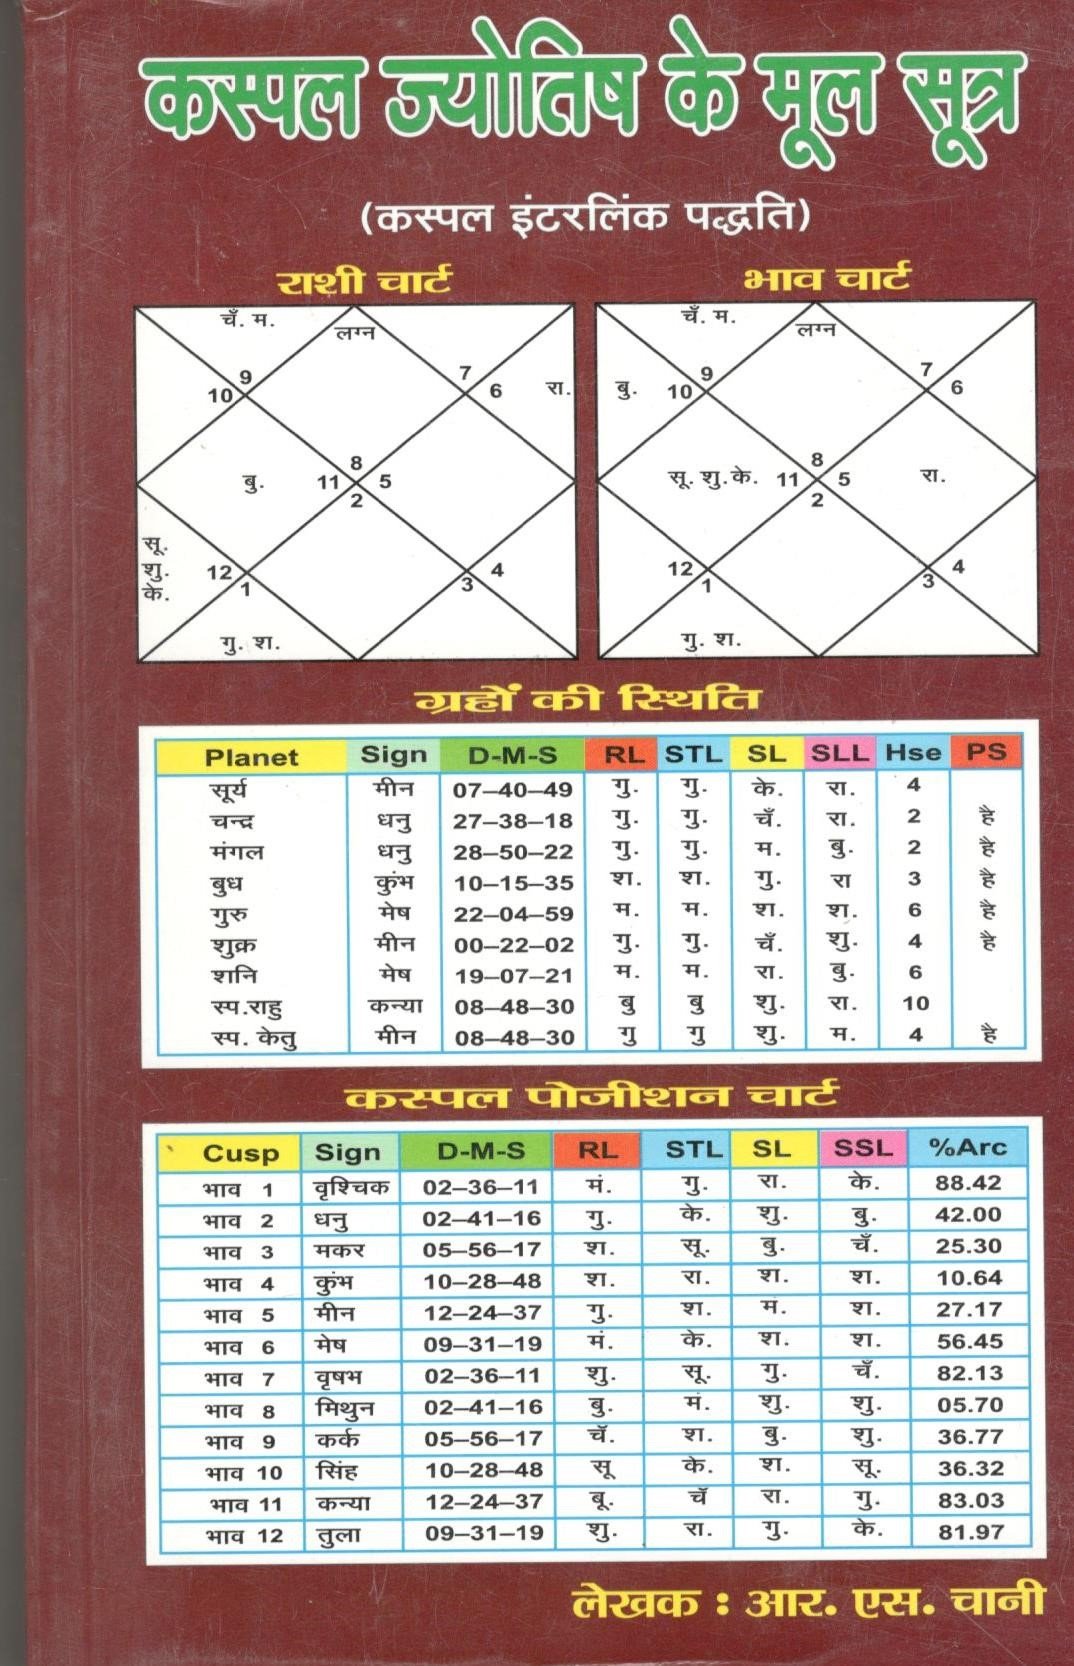 कस्पल ज्योतिष के मूल सूत्र
(कस्पल इंटरलिंक पद्धति)
राशी चार्ट
चँ. म.
लग्न
9
10
7
6
रा.
बु.
8
11
5
2
सू.
शु.
के.
12
1
4
3
गु. श.
भाव चार्ट
चँ. म.
लग्न
बु.
9
10
7
6
सू. शु. के.
8
11
5
2
रा.
12
1
4
3
गु. श.
ग्रहों की स्थिति
Planet Sign D-M-S RL STL SL SLL Hse PS
सूर्य मीन 07–40–49 गु. गु. के. रा. 4
चन्द्र धनु 27–38–18 गु. गु. चँ. रा. 2 है
मंगल धनु 28–50–22 गु. गु. म. बु. 2 है
बुध कुंभ 10–15–35 श. श. गु. रा 3 है
गुरु मेष 22–04–59 म. म. श. श. 6 है
शुक्र मीन 00–22–02 गु. गु. चँ. शु. 4 है
शनि मेष 19–07–21 म. म. रा. बु. 6
स्प.राहु कन्या 08–48–30 बु बु शु. रा. 10
स्प. केतु मीन 08–48–30 गु गु शु. म. 4 है
कस्पल पोजीशन चार्ट
Cusp Sign D-M-S RL STL SL SSL %Arc
भाव 1 वृश्चिक 02–36–11 मं. गु. रा. के. 88.42
भाव 2 धनु 02–41–16 गु. के. शु. बु. 42.00
भाव 3 मकर 05–56–17 श. सू. बु. चँ. 25.30
भाव 4 कुंभ 10–28–48 श. रा. श. श. 10.64
भाव 5 मीन 12–24–37 गु. श. मं. श. 27.17
भाव 6 मेष 09–31–19 मं. के. श. श. 56.45
भाव 7 वृषभ 02–36–11 शु. सू. गु. चँ. 82.13
भाव 8 मिथुन 02–41–16 बु. मं. शु. शु. 05.70
भाव 9 कर्क 05–56–17 चॅ. श. बु. शु. 36.77
भाव 10 सिंह 10–28–48 सू के. श. सू. 36.32
भाव 11 कन्या 12–24–37 बू. चॅ रा. गु. 83.03
भाव 12 तुला 09–31–19 शु. रा. गु. के. 81.97
लेखक : आर. एस. चानी